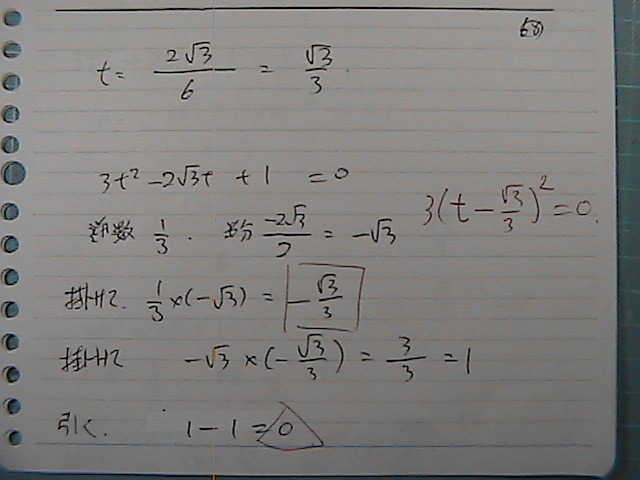 (58)
t = 2√3/6 = √3/3
3t² - 2√3t + 1 = 0
逆数 1/3. 半分 -2√3/2 = -√3
3(t - √3/3)² = 0.
掛けて. 1/3 × (-√3) = -√3/3
掛けて -√3 × (-√3/3) = 3/3 = 1
引く. 1 - 1 = 0